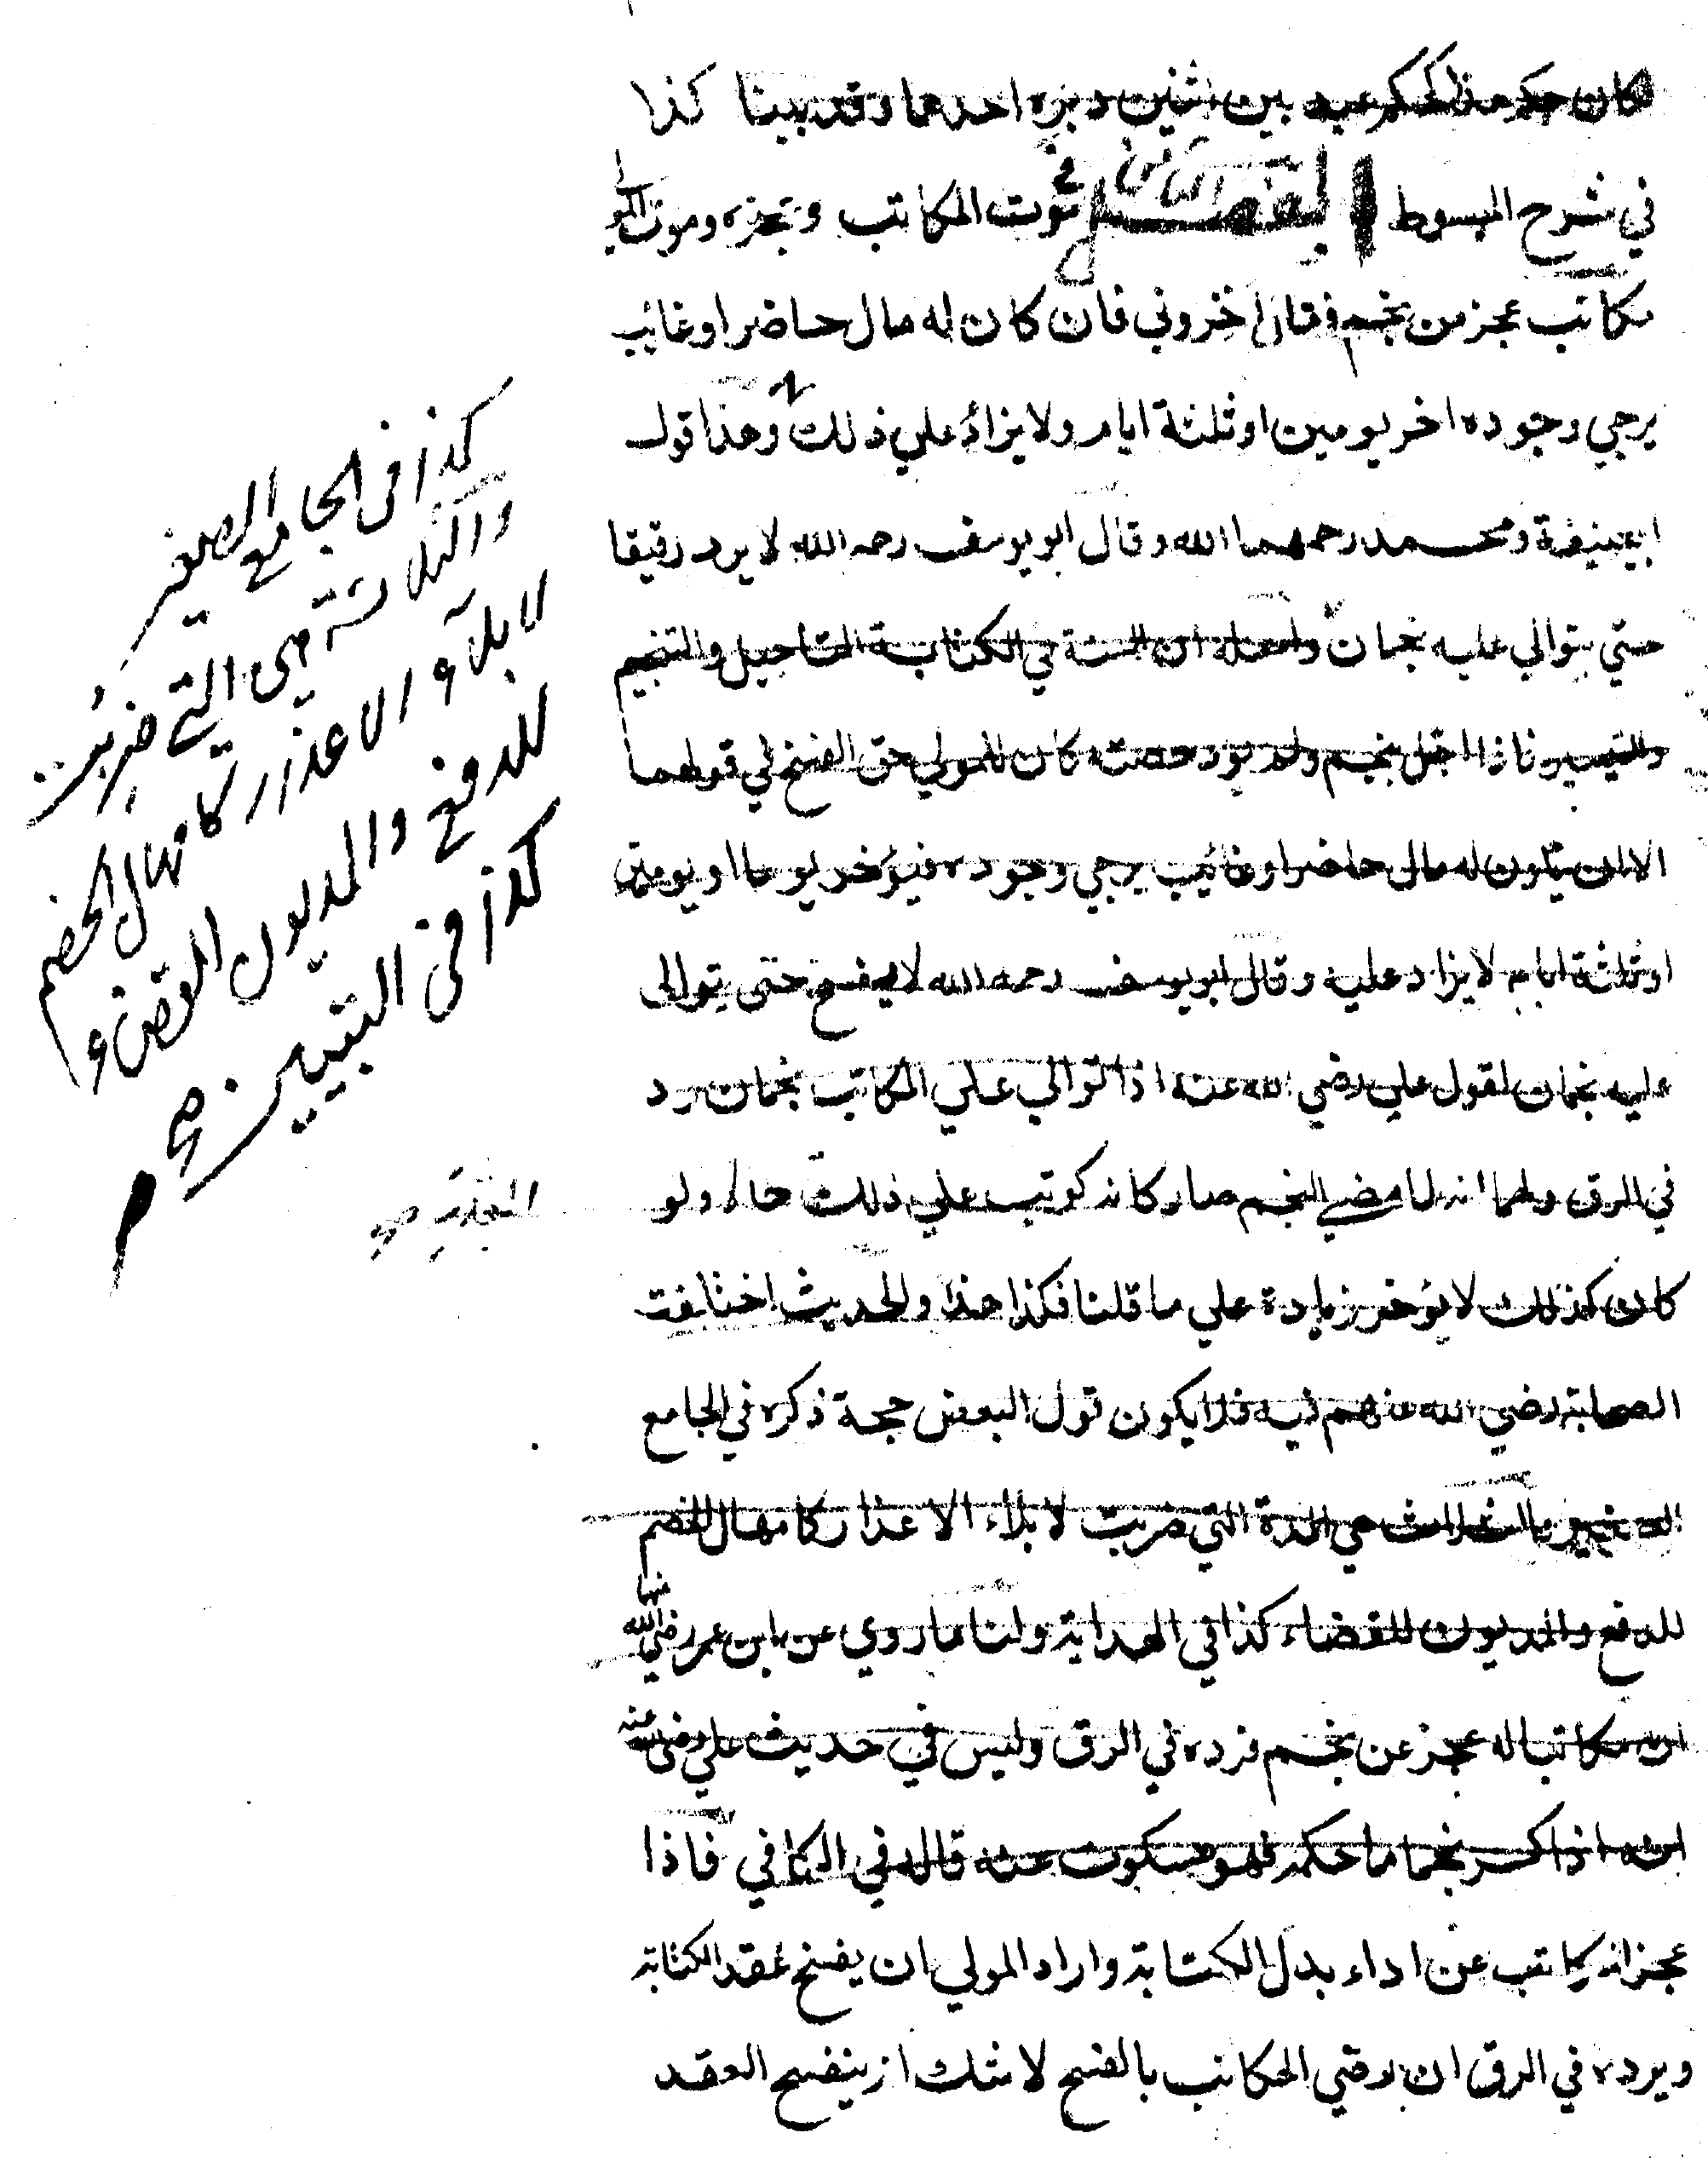 فكان حكم هذا كحكم عبد بين اثنين دبره احدهما وقد بينا كذا
في شرح المبسوط الفصل الثامن في موت المكاتب وعجزه وموت المولى
مكاتب عجز من نجم فقال اخروني فان كان له مال حاضر او غائب
يرجي وجوده اخر يومين او ثلثة ايام ولا يزاد علي ذلك وهذا قول
ابيحنيفة ومحمد رحمهما الله وقال ابو يوسف رحمه الله لا يرد رقيقا
حتي يتوالي عليه نجمان واصله ان السنة في الكتابة التاجيل والتنجيم
والتيسير فاذا اخل بنجم ولم يود حصته كان للمولي حق الفسخ في قولهما
الا ان يكون له مال حاضر او غائب يرجي وجوده فيؤخر يوما او يومين
او ثلثة ايام لا يزاد عليه وقال ابو يوسف رحمه الله لا يفسخ حتى يتوالى
عليه نجمان لقول علي رضي الله عنه اذا توالي علي المكاتب نجمان رد
في الرق ولهما انه لما مضي النجم صار كانه كوتب علي ذلك حالا ولو
كان كذلك لا يؤخر زيادة علي ما قلنا فكذا هذا والحديث اختلفت
الصحابة رضي الله عنهم فيه فلا يكون قول البعض حجة ذكره في الجامع
الصغير والثلاث هي المدة التي ضربت لابلاء الاعذار كامهال الخصم
للدفع والمديون للقضاء كذا في الهداية ولنا ما روي عن ابن عمر رضي الله عنهما
ان مكاتبا له عجز عن نجم فرده في الرق وليس في حديث علي رضي الله عنه
انه اذا كسر نجما ما حكمه فهو مسكوت عنه قاله في الكافي فاذا
عجز المكاتب عن اداء بدل الكتابة واراد المولي ان يفسخ عقد الكتابة
ويرده في الرق ان رضي المكاتب بالفسخ لا شك ان ينفسخ العقد
كذا في الجامع الصغير
والثلاثة هي التي ضربت
لابلاء الاعذار كامهال الخصم
للدفع والمديون للقضاء
كذا في التبيين صح